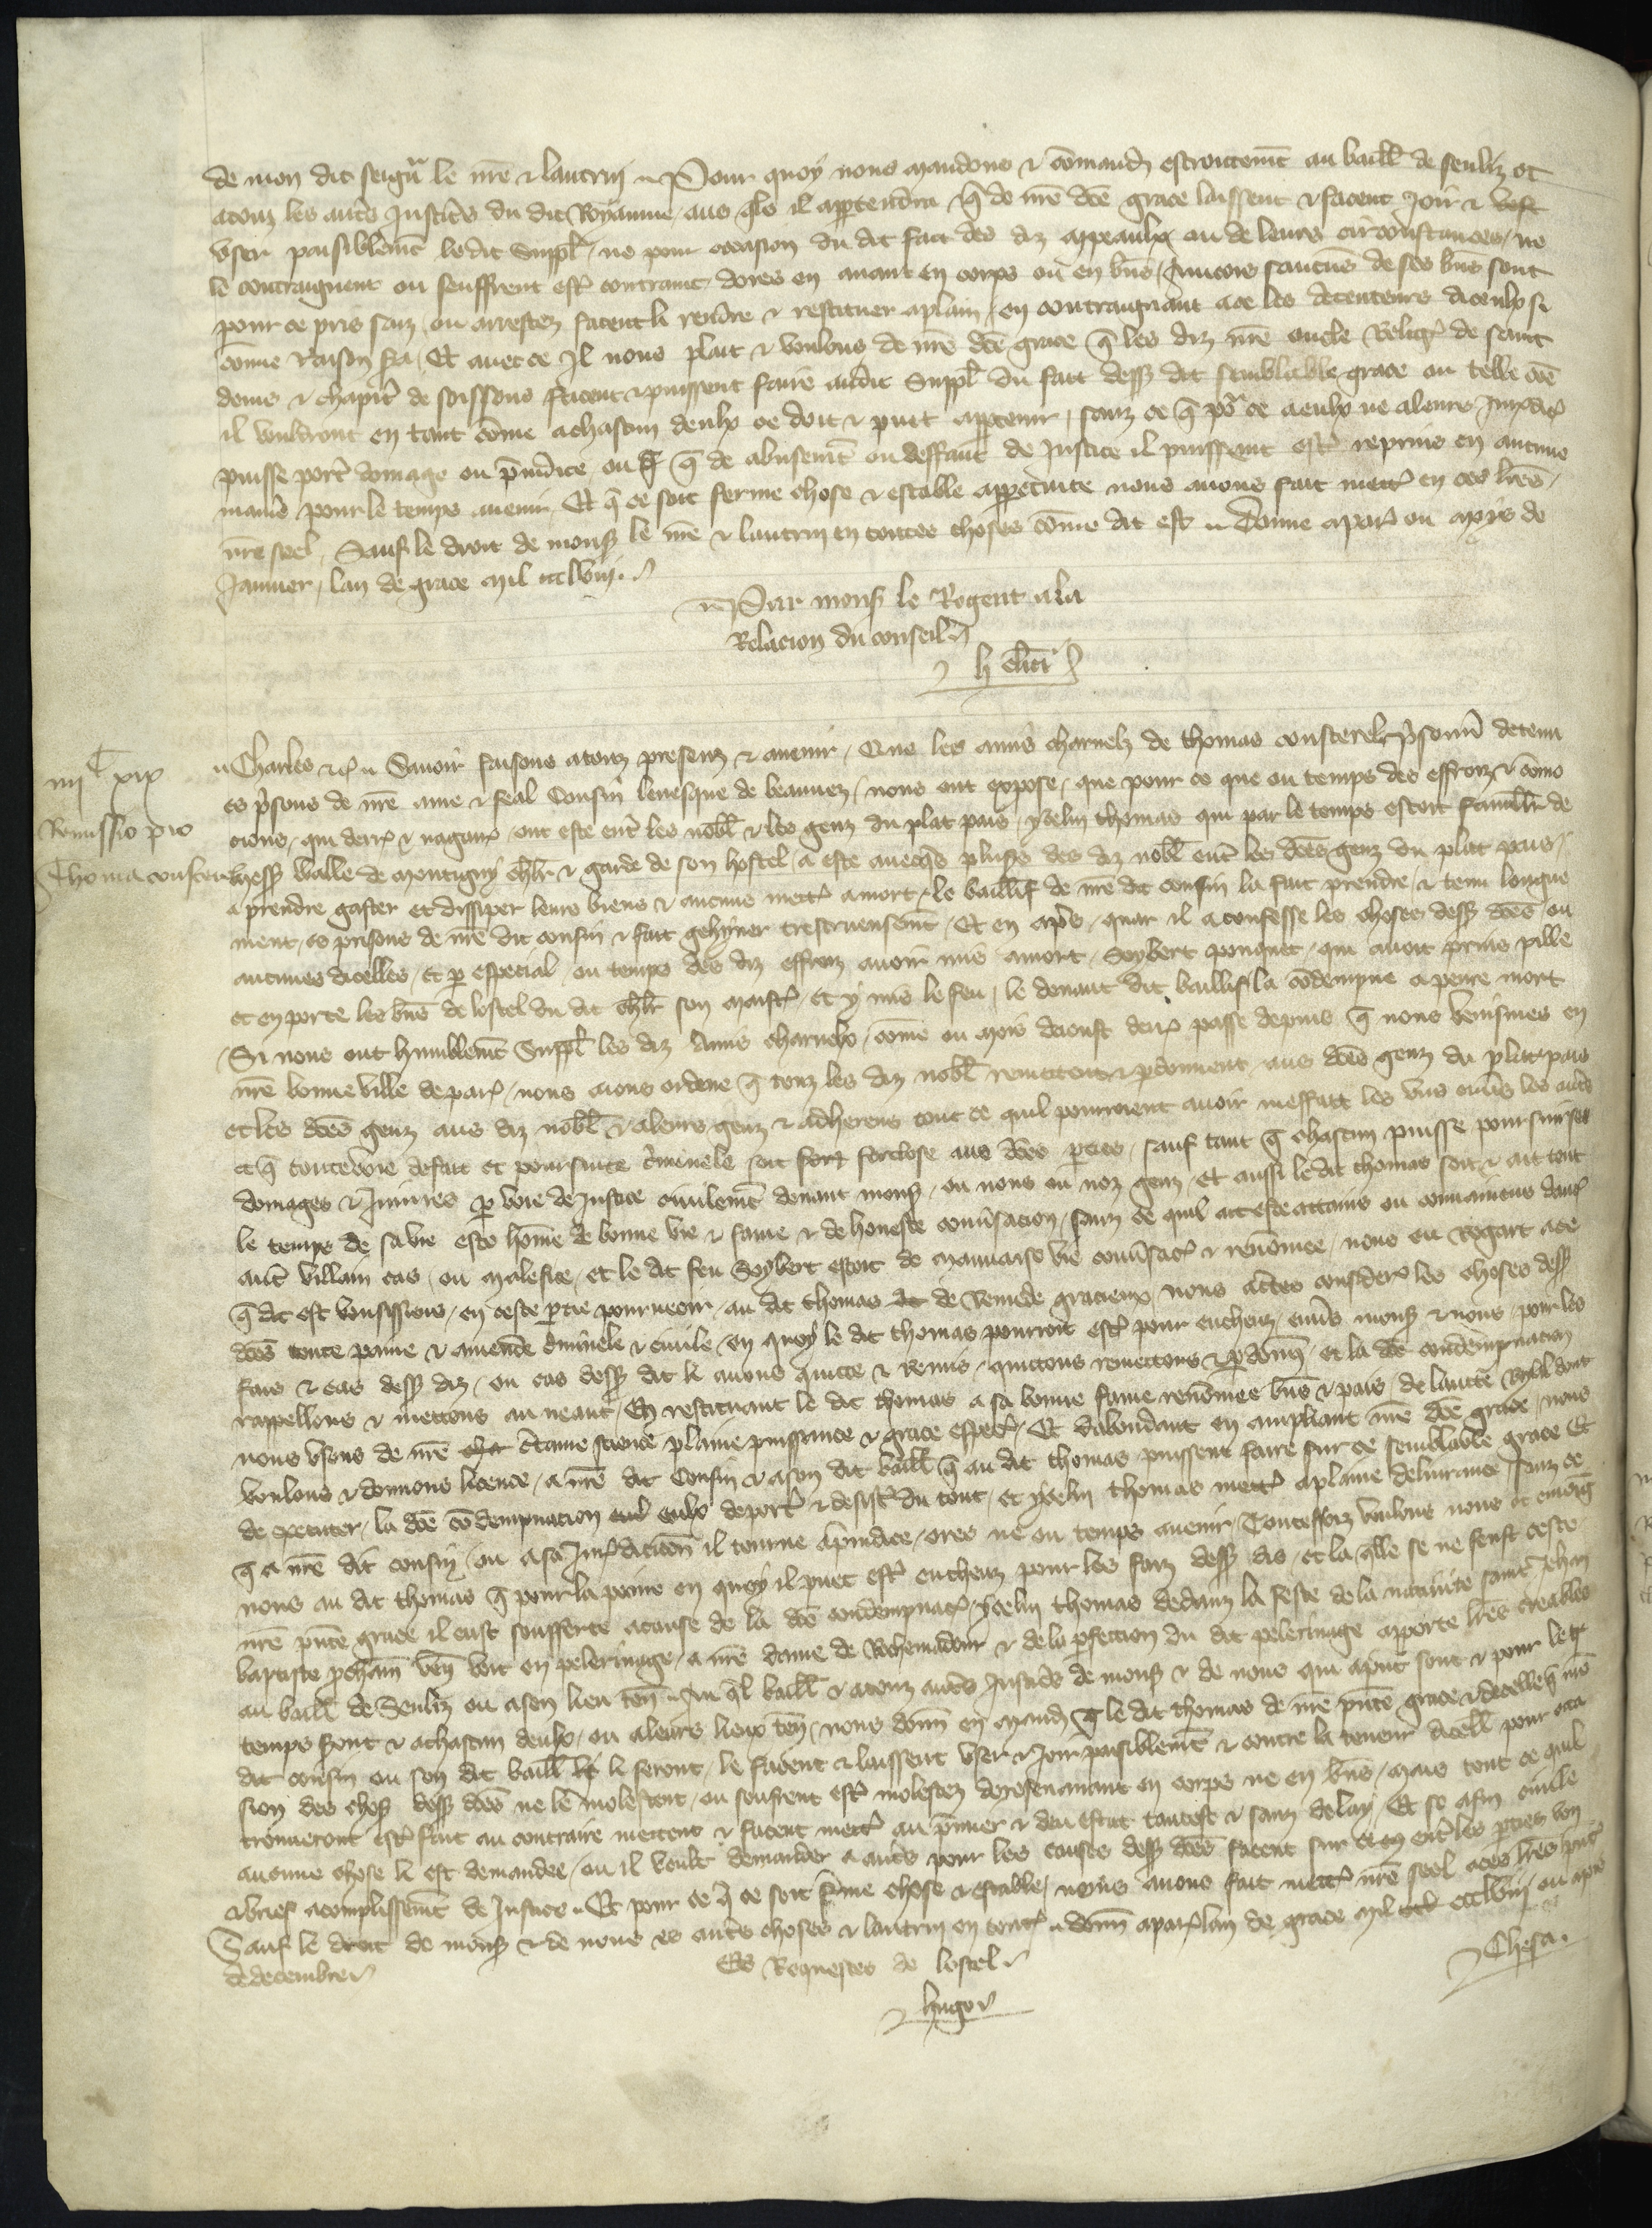 de mon dit seignr le nre & lautrui .. Pour quoy nous mandons & comandons estroittemt au baill de senliz et
a touz les autres Justices du dit Royaume, aus qls il appartendra q de nre dce grace laissent & facent Joir &
user paisiblemt le dit Suppl, ne pour occasion du dit fait des diz appeaulx ou de leurs circonstances, ne
le contraignent ou seuffrent estre contraint dores en avant en corps ou en bns, Aincois saucuns de ses bns sont
pour ce pris saiz ou arrestez facent li rendre & restituer a plain, en contraignant a ce les detenteurs diceulx si
come raison sra, Et avec ce Il nous plait & voulons de nre dce grace q les diz nre oncle Religx de saint
denis & chapitre de soissons facent & puissent faire audit Suppl du fait dess dit semblable grace ou telle coe
il vouldront en tant come a chascun deulx ce doit & puit appartenir, sanz ce q por ce a eulx ne a leurs Jurisdic
puisse porter domage ou priudice ou q de abusemt ou deffaut de Justice il puissent estre repris en aucune
maniere pour le temps avenir, Et q ce soit ferme chose & estable a perpetuite nous avons fait mettre en ces lres,
nre seel, Sauf le droit de mons le nre & lautrui en toutes choses come dit est .. Donne a paris ou mois de
Januier, lan de grace mil ccclviij.
.. Par mons le Regent a la
Relacion du conseil
h
iiijC xix
Remissio pro
Thoma couster
.. Charles &c .. Savoir faisons a touz presenz & avenir, Que les amis charnelz de thomas cousterel prisonn detenu
es prisons de nre ame & feal Cousin levesque de beauvez, nous ont expose, que pour ce que ou temps des effroiz & como
cions, qui derr & nagaires ont este entre les nobl & les genz du plat pais, ycelui thomas qui par le temps estoit famillr de
mess Wille de montigny chlr & garde de son hostel, a este avecqs plus des diz nobl entre les dces genz du plat pais,
a prendre gaster et dissiper leurs biens & aucuns mettre a mort, le baillif de nre dit cousin la fait prendre, & tenu longue
ment, es prisons de nre dit cousin & fait gehyner trescruensemt, Et en apres, quar il a confesse les choses dess dces, ou
aucunes dicelles, et p especial, ou temps des diz effroiz avoir mis a mort, Soybert ponquet, qui avoit pris pille
et emporte les bns de lostel du dit chlr son maistre, et y mis le feu, le devant dit baillif la codempne a peine mort
Si nous ont humblemt Suppl les diz Amis charnelx, come ou mois daoust derr passe depuis q nous venismes en
nre bonne ville de paris, nous aions ordene q touz les diz nobl remettent & pdonnent, aus dces genz du plat pais
et les dces genz aus diz nobl & a leurs genz & adherens tout ce quil pourroient avoir meffait les uns envers les autres
et q toute voie de fait et poursuite criminele soit forclose aus dces pties, sauf tant q chascun puisse poursuir ses
domages & Iniures p voie de Justice civilemt devant mons, ou nous ou noz genz, et aussi le dit thomas soit & ait tout
le temps de sa vie este home de bonne vie & fame & de honeste convsacion, sanz ce quil ait este attains ou convaincus daucun
autre villain cas, ou malefice, et le dit feu Soybert estoit de mauvaise vie convsacion & renomee, nous eu Regart a ce
q dit est vousissions, en ceste ptie pourveoir, au dit thomas de Remede gracieux, nous actes considere les choses dess
dces toute paine & amende criminele & civile, en quoy le dit thomas pourroit estre pour encheuz, envs mons & nous, pour les
faiz & cas dess diz, ou cas dess dit li avons quicte & Remis, quittons remettons & pdonons, et la dce condempnacion
rappellons & mettons au neant, En restituant le dit thomas a sa bonne fame renomee bns & pais, de lautte Royal dont
nous usons de nre ctaine science plaine puissance & grace especl, Et dabondant en ampliant nre dce grace, nous
voulons & donnons licence, a nre dit Cousin & a son dit baill q au dit thomas puissent faire sur ce semblable grace Et
de executer, la dce codempnacion eulx deporter & desister du tout, et ycelui thomas mettre a plaine delivrance sanz ce
q a nre dit cousin, ou a sa Jurisdiction il tourne a priudice, ores ne ou temps avenir, Toutesfoiz voulons nous et enioing
nons au dit thomas q pour la peine en quoy il puet estre encheuz pour les faiz dess dis, et la qlle se ne feust ceste
nre pnte grace il eust soufferte a cause de la dce condempnac, ycelui thomas dedanz la feste de la nativite saint Jehan
baptiste prochain ven voit en pelerinage, a nre dame de Rochemadour & de la pfection du dit pelerinage apporte lres creables
au baill de Senliz ou a son lieu ten, Au ql baill & a touz autres Justices de mons & de nous qui a pnt sont & pour le
temps sront & a chascun deulx, ou a leurs lieux ten, nous donn en mand q le dit thomas de nre pnte grace & de celle q nre
dit cousin ou son dit baill li feront, le facent & laissent user & Joir paisiblemt & contre la teneur dicell pour occa
sion des chos dess dces ne le molestent, ou seufrent estre molestez doresenavant en corps ne en bns, mais tout ce quil
trouveront estre fait au contraire mettent & facent mettre au pmier & deu estat tantost & sanz delay, Et se a fin civile
aucune chose li est demandee, ou il veult demander a autres pour les causes dess dces facent sur ce entre les pties bon
& brief acomplissemt de Justice .. Et pour ce q ce soit ferme chose & estable, nous avons fait mettre nre seel a ces lres pnt
Sauf le droit de mons & de nous es autres choses & lautrui en toutes .. donn a paris lan de grace mil ccclviij, ou mois
de decembre
Es Requestes de lostel
hugo
Chesa.